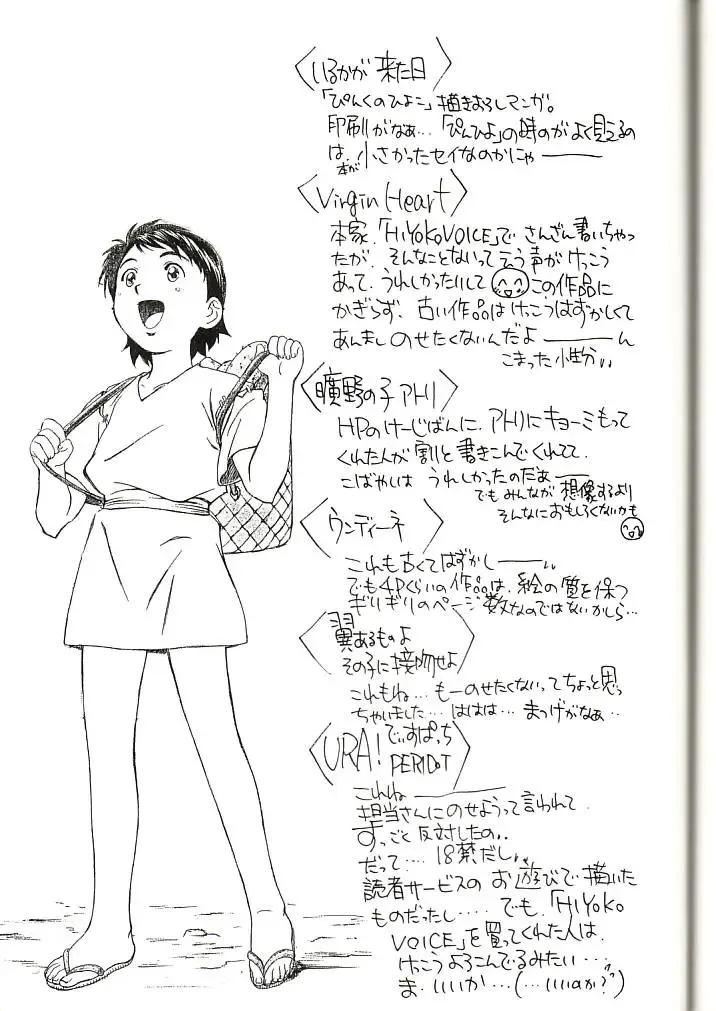 いるかが来た日
「ぴんくのひよこ」描きおろしマンガ。
印刷がなぁ…「ぴんひよ」の時のがよく見えるの
は、本が小さかったセイなのかにゃ———
Virgin Heart
本家、「HIYOKO VOICE」でさんざん書いちゃっ
たが、そんなことないって云う声がけっこう
あって、うれしかったいして この作品に
かぎらず、古い作品はけっこうはずかしくて
あんましのせたくないんだよ———ん
こまった性分、、
曠野の子アハリ
HPのけーじばんに、アハリにキョーミもって
くれた人が割と書きこんでくれてて、
こばやしは うれしかったのだぁ——
でもみんなが想像するより
そんなにおもしろくないかも
ウンディーネ
これも古くてはずかし———、、
でも4Pくらいの作品は、絵の質を保つ
ギリギリのページ数なのではないかしら…
翼あるものよ
その子に接吻せよ
これもね…もーのせたくないってちょっと思っ
ちゃいました…ははは…まつげがなぁ‥
URA! でぃすぱっち
PERIDOT
これね————
担当さんにのせようって言われて、
すっごく反対したの、、
だって…、18禁だし、、
読者サービスのお遊びで描いた
ものだったし‥‥でも、「HIYOKO
VOICE」を買ってくれた人は、
けっこうよろこんでるみたい…
ま、いいか…(…いいのか?)